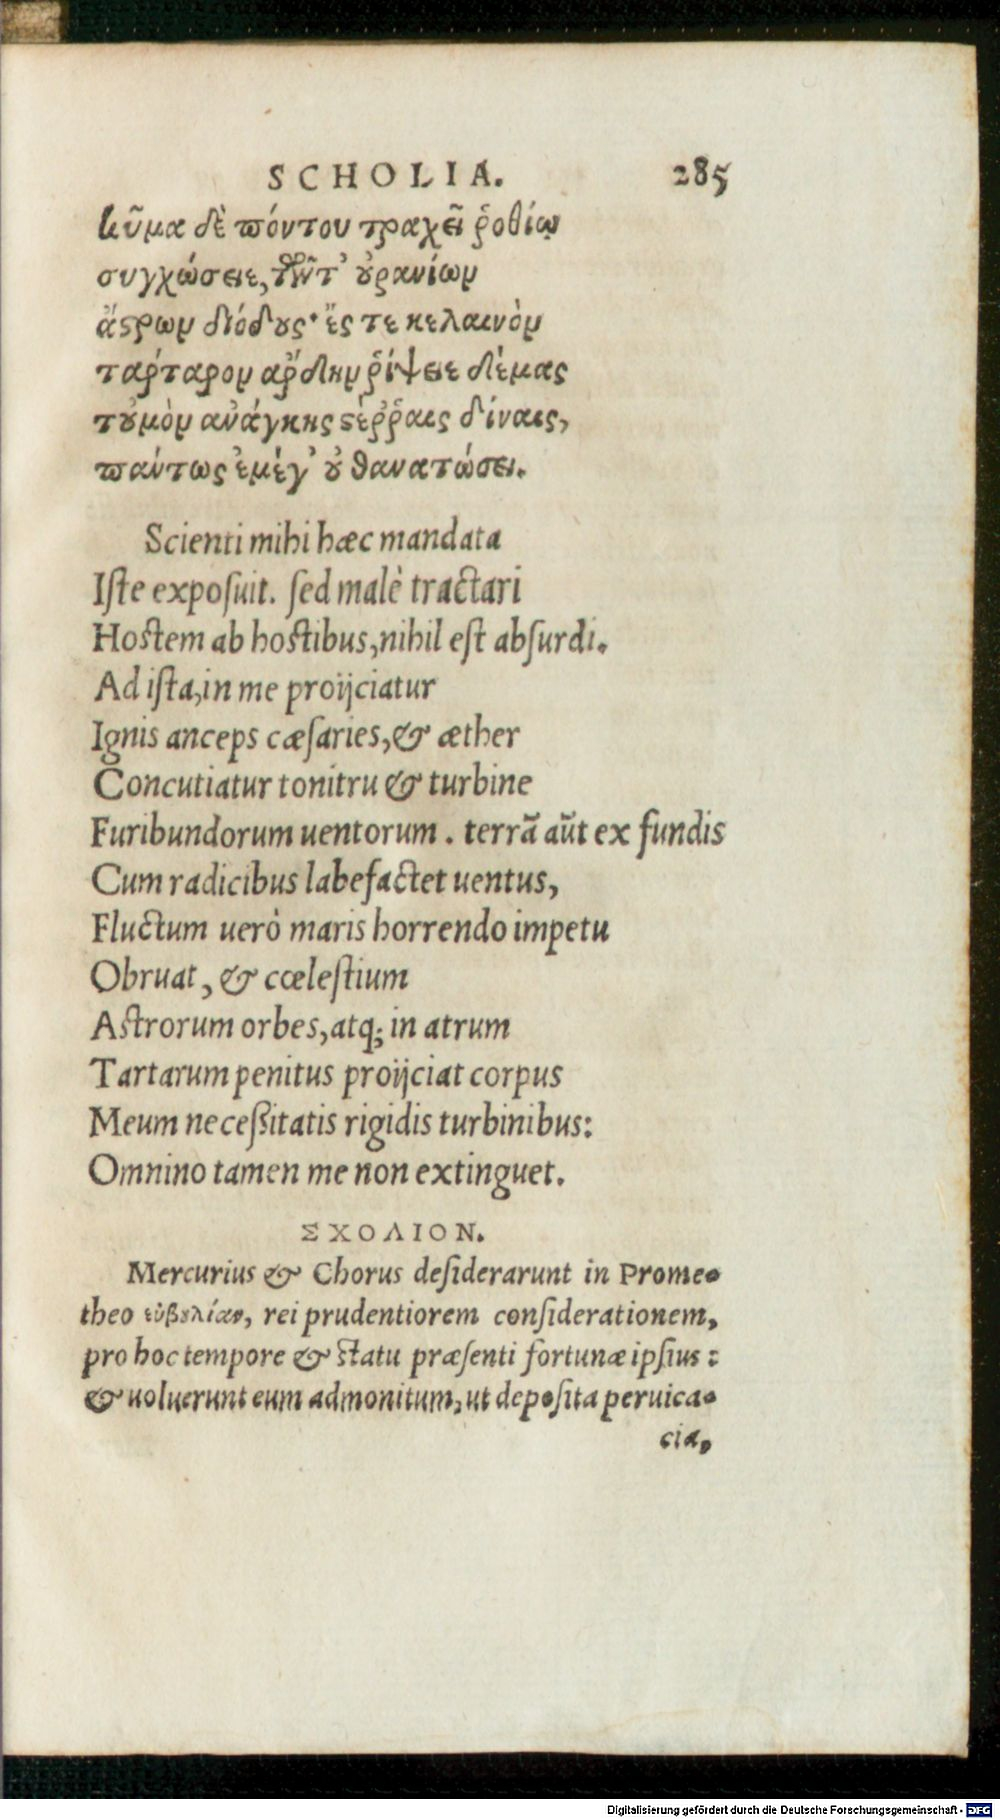 SCHOLIA. 285
κῦμα δὲ πόντου τραχεῖ ῥοθίῳ
συγχώσειε, τῶν τ' οὐρανίων
ἄστρων διόδους· ἔς τε κελαινὸν
τάρταρον ἄρδην ῥίψειε δέμας
τοὐμὸν ἀνάγκης στέῤῥαις δίναις,
πάντως ἐμέ γ' οὐ θανατώσει.
Scienti mihi hæc mandata
Iſte expoſuit. ſed malè tractari
Hoſtem ab hoſtibus, nihil eſt abſurdi.
Ad iſta, in me proijciatur
Ignis anceps cæſaries, & æther
Concutiatur tonitru & turbine
Furibundorum uentorum. terrã aũt ex fundis
Cum radicibus labefactet uentus,
Fluctum uerò maris horrendo impetu
Obruat, & cœleſtium
Aſtrorum orbes, atq; in atrum
Tartarum penitus proijciat corpus
Meum neceßitatis rigidis turbinibus:
Omnino tamen me non extinguet.
ΣΧΟΛΙΟΝ.
Mercurius & Chorus deſiderarunt in Prome-
theo εὐβουλίαν, rei prudentiorem conſiderationem,
pro hoc tempore & ſtatu præſenti fortunæ ipſius:
& uoluerunt eum admonitum, ut depoſita peruica-
cia,
Digitalisierung gefördert durch die Deutsche Forschungsgemeinschaft - DFG